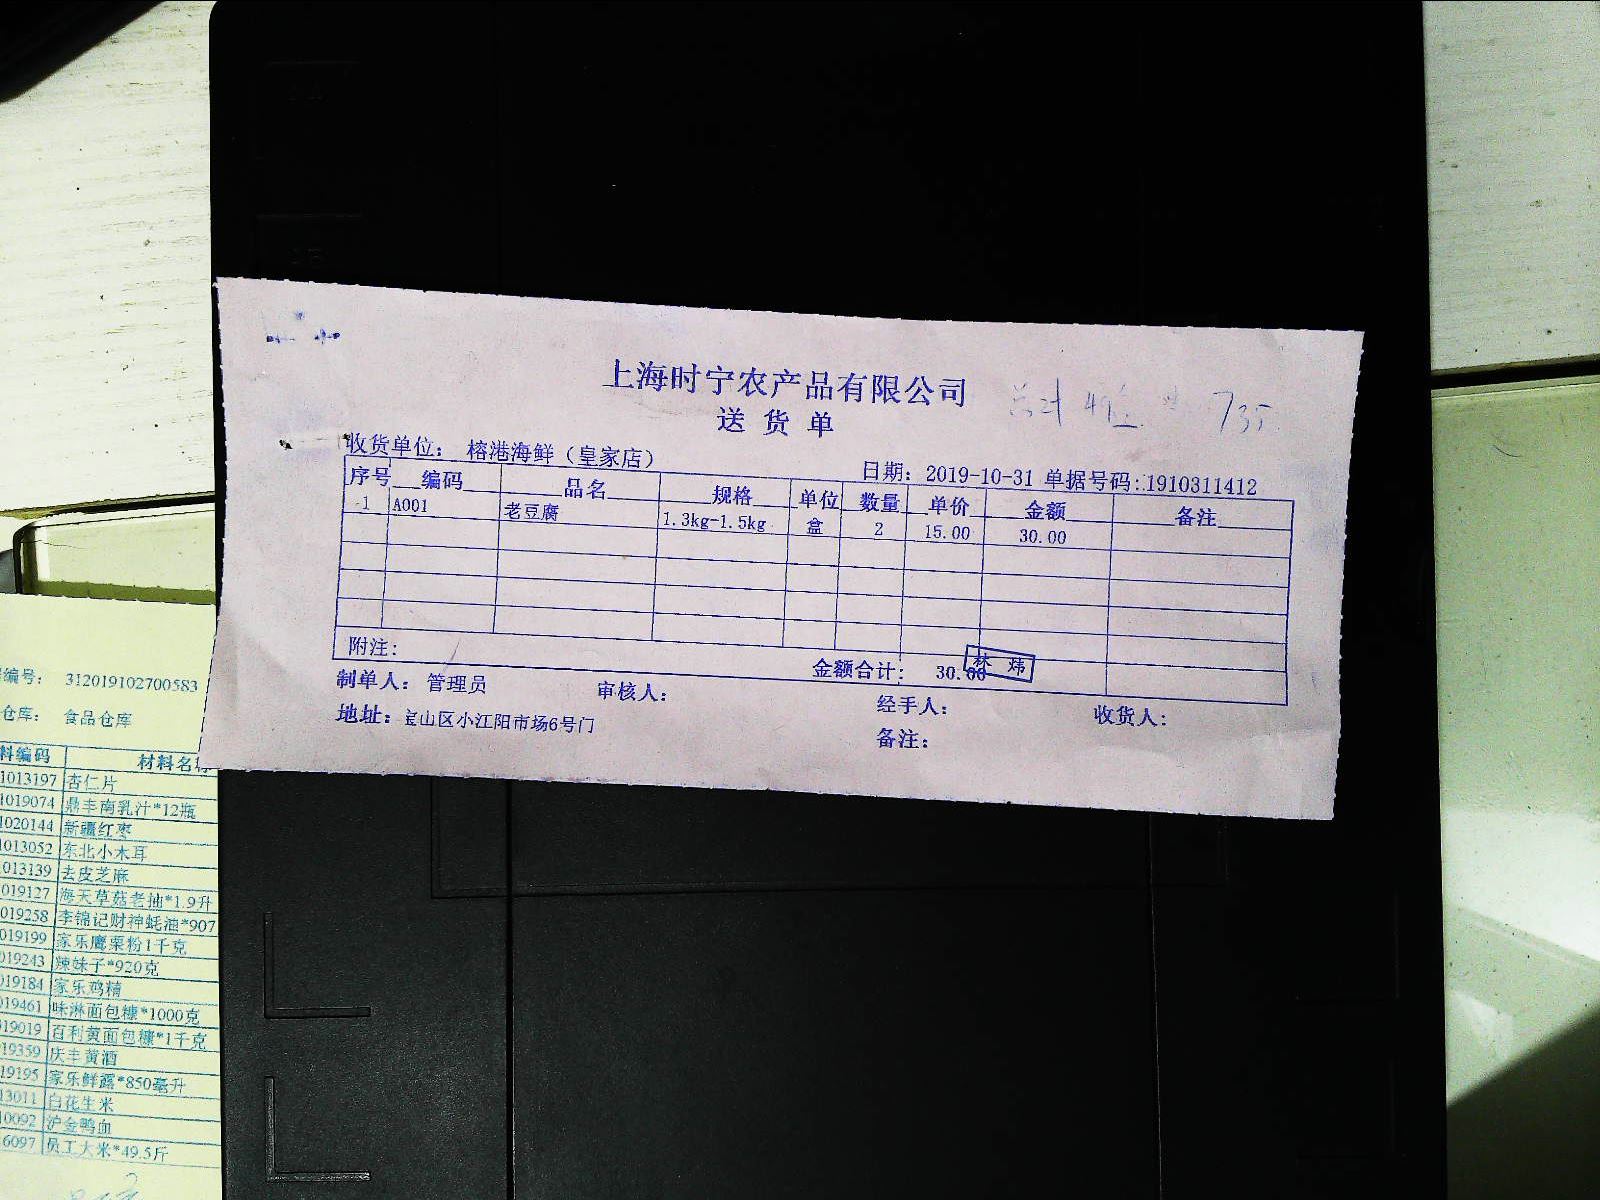 上海时宁农产品有限公司
总计 49盒 735
送 货 单
收货单位： 榕港海鲜（皇家店）
日期： 2019-10-31 单据号码：1910311412
序号 编码 品名 规格 单位 数量 单价 金额 备注
1 A001 老豆腐 1.3kg-1.5kg 盒 2 15.00 30.00
附注：
金额合计： 30.00
林 炜
制单人： 管理员 审核人： 经手人： 收货人：
地址： 宝山区小江阳市场6号门
备注：
编号： 312019102700583
仓库： 食品仓库
料编码 材料名称
1013197 杏仁片
1019074 鼎丰南乳汁*12瓶
1020144 新疆红枣
1013052 东北小木耳
013139 去皮芝麻
019127 海天草菇老抽*1.9升
019258 李锦记财神蚝油*907
019199 家乐鹰粟粉1千克
019243 辣妹子*920克
019184 家乐鸡精
019461 味淋面包糠*1000克
019019 百利黄面包糠*1千克
19359 庆丰黄酒
19195 家乐鲜露*850毫升
13011 白花生米
0092 沪金鸭血
6097 员工大米*49.5斤